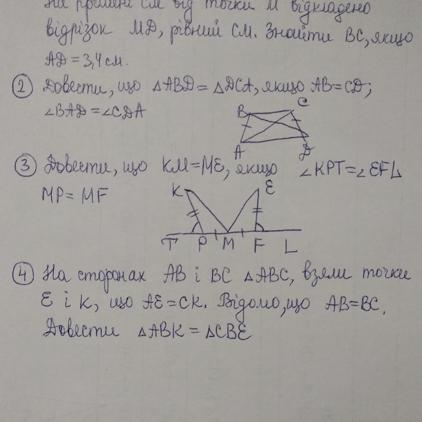 На промені СМ від точки М відкладено
відрізок MD, рівний СМ. Знайти ВС, якщо
AD = 3,4 см.
② Довести, що △ABD = △DCA, якщо AB = CD;
∠BAD = ∠CDA
B C
A D
③ Довести, що KM = ME, якщо ∠KPT = ∠EFL
MP = MF
K E
T P M F L
④ На сторонах AB і BC △ABC, взяли точки
E і K, що AE = CK. Відомо, що AB = BC.
Довести △ABK = △CBE